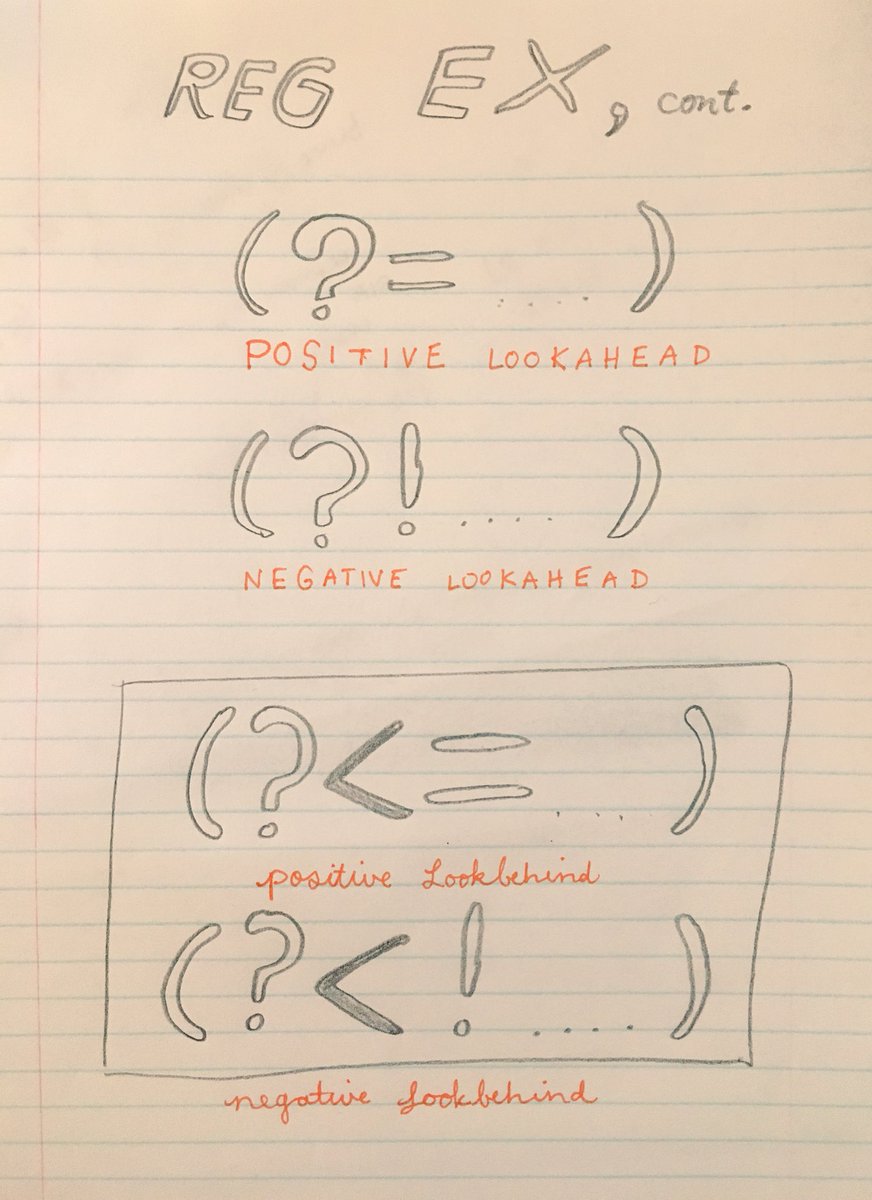 REG EX, cont.
(?= .... )
POSITIVE LOOKAHEAD
(?! .... )
NEGATIVE LOOKAHEAD
(?<= .... )
positive Lookbehind
(?<! .... )
negative Lookbehind